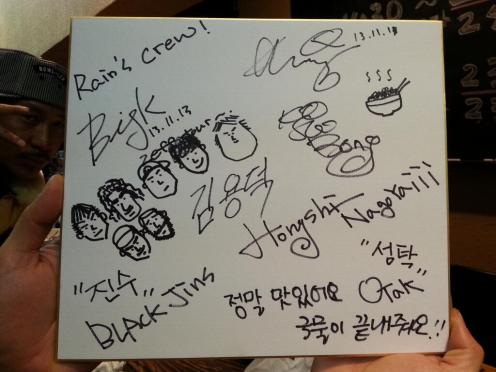 Rain's Crew!
13.11.13
Bigk
13.11.13
김용덕
Hongshi
Nagaraiii
"진수"
BLACK Jins
"성탁"
OtaK
정말 맛있어요
국물이 끝내줘요!!